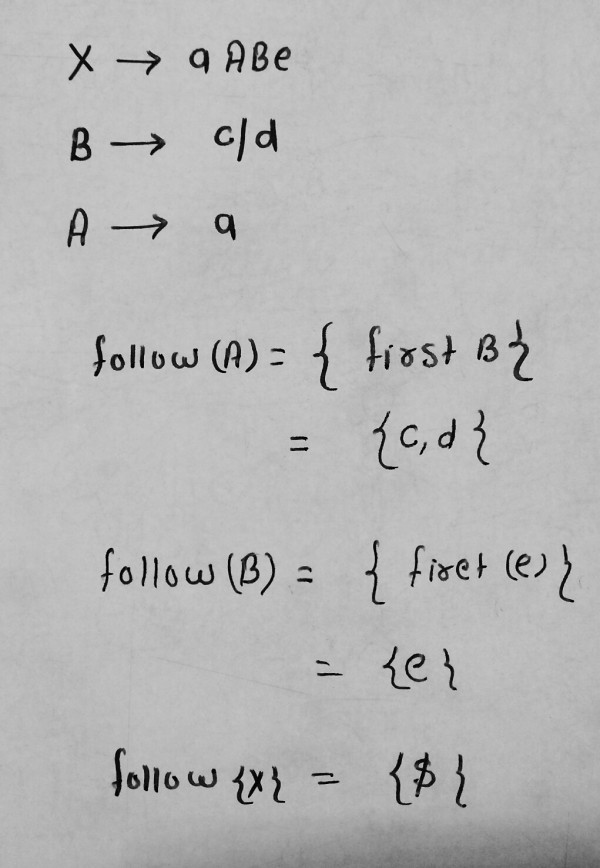 X → a ABe
B → c/d
A → a
follow (A) = { first B }
= { c, d }
follow (B) = { first (e) }
= { e }
follow {x} = { $ }